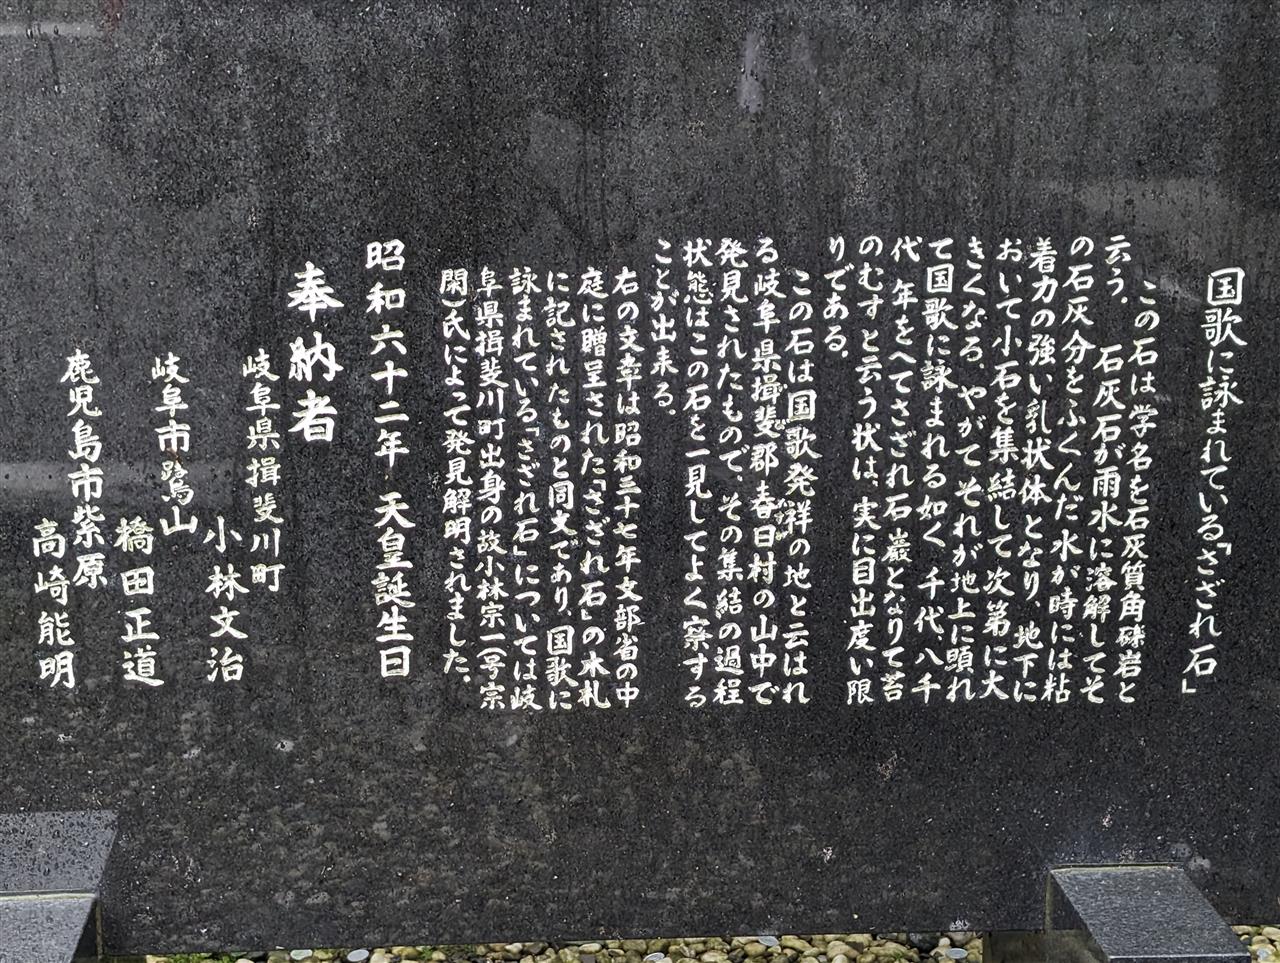 国歌に詠まれている「さざれ石」
この石は学名を石灰質角礫岩と
云う。 石灰石が雨水に溶解してそ
の石灰分をふくんだ水が時には粘
着力の強い乳状体となり、地下に
おいて小石を集結して次第に大
きくなる。やがてそれが地上に顕れ
て国歌に詠まれる如く 千代、八千
代 年をへてさざれ石 巌となりて苔
のむすと云う状は、実に目出度い限
りである。
この石は国歌発祥の地と云はれ
る岐阜県揖斐郡春日村の山中で
発見されたもので、その集結の過程
状態はこの石を一見してよく察する
ことが出来る。
右の文章は昭和三十七年文部省の中
庭に贈呈された「さざれ石」の木札
に記されたものと同文であり、国歌に
詠まれている「さざれ石」については岐
阜県揖斐川町出身の故小林宗一(号宗
閑)氏によって発見解明されました。
昭和六十二年 天皇誕生日
奉納者
岐阜県揖斐川町
小林文治
岐阜市鷺山
橋田正道
鹿児島市紫原
高崎能明